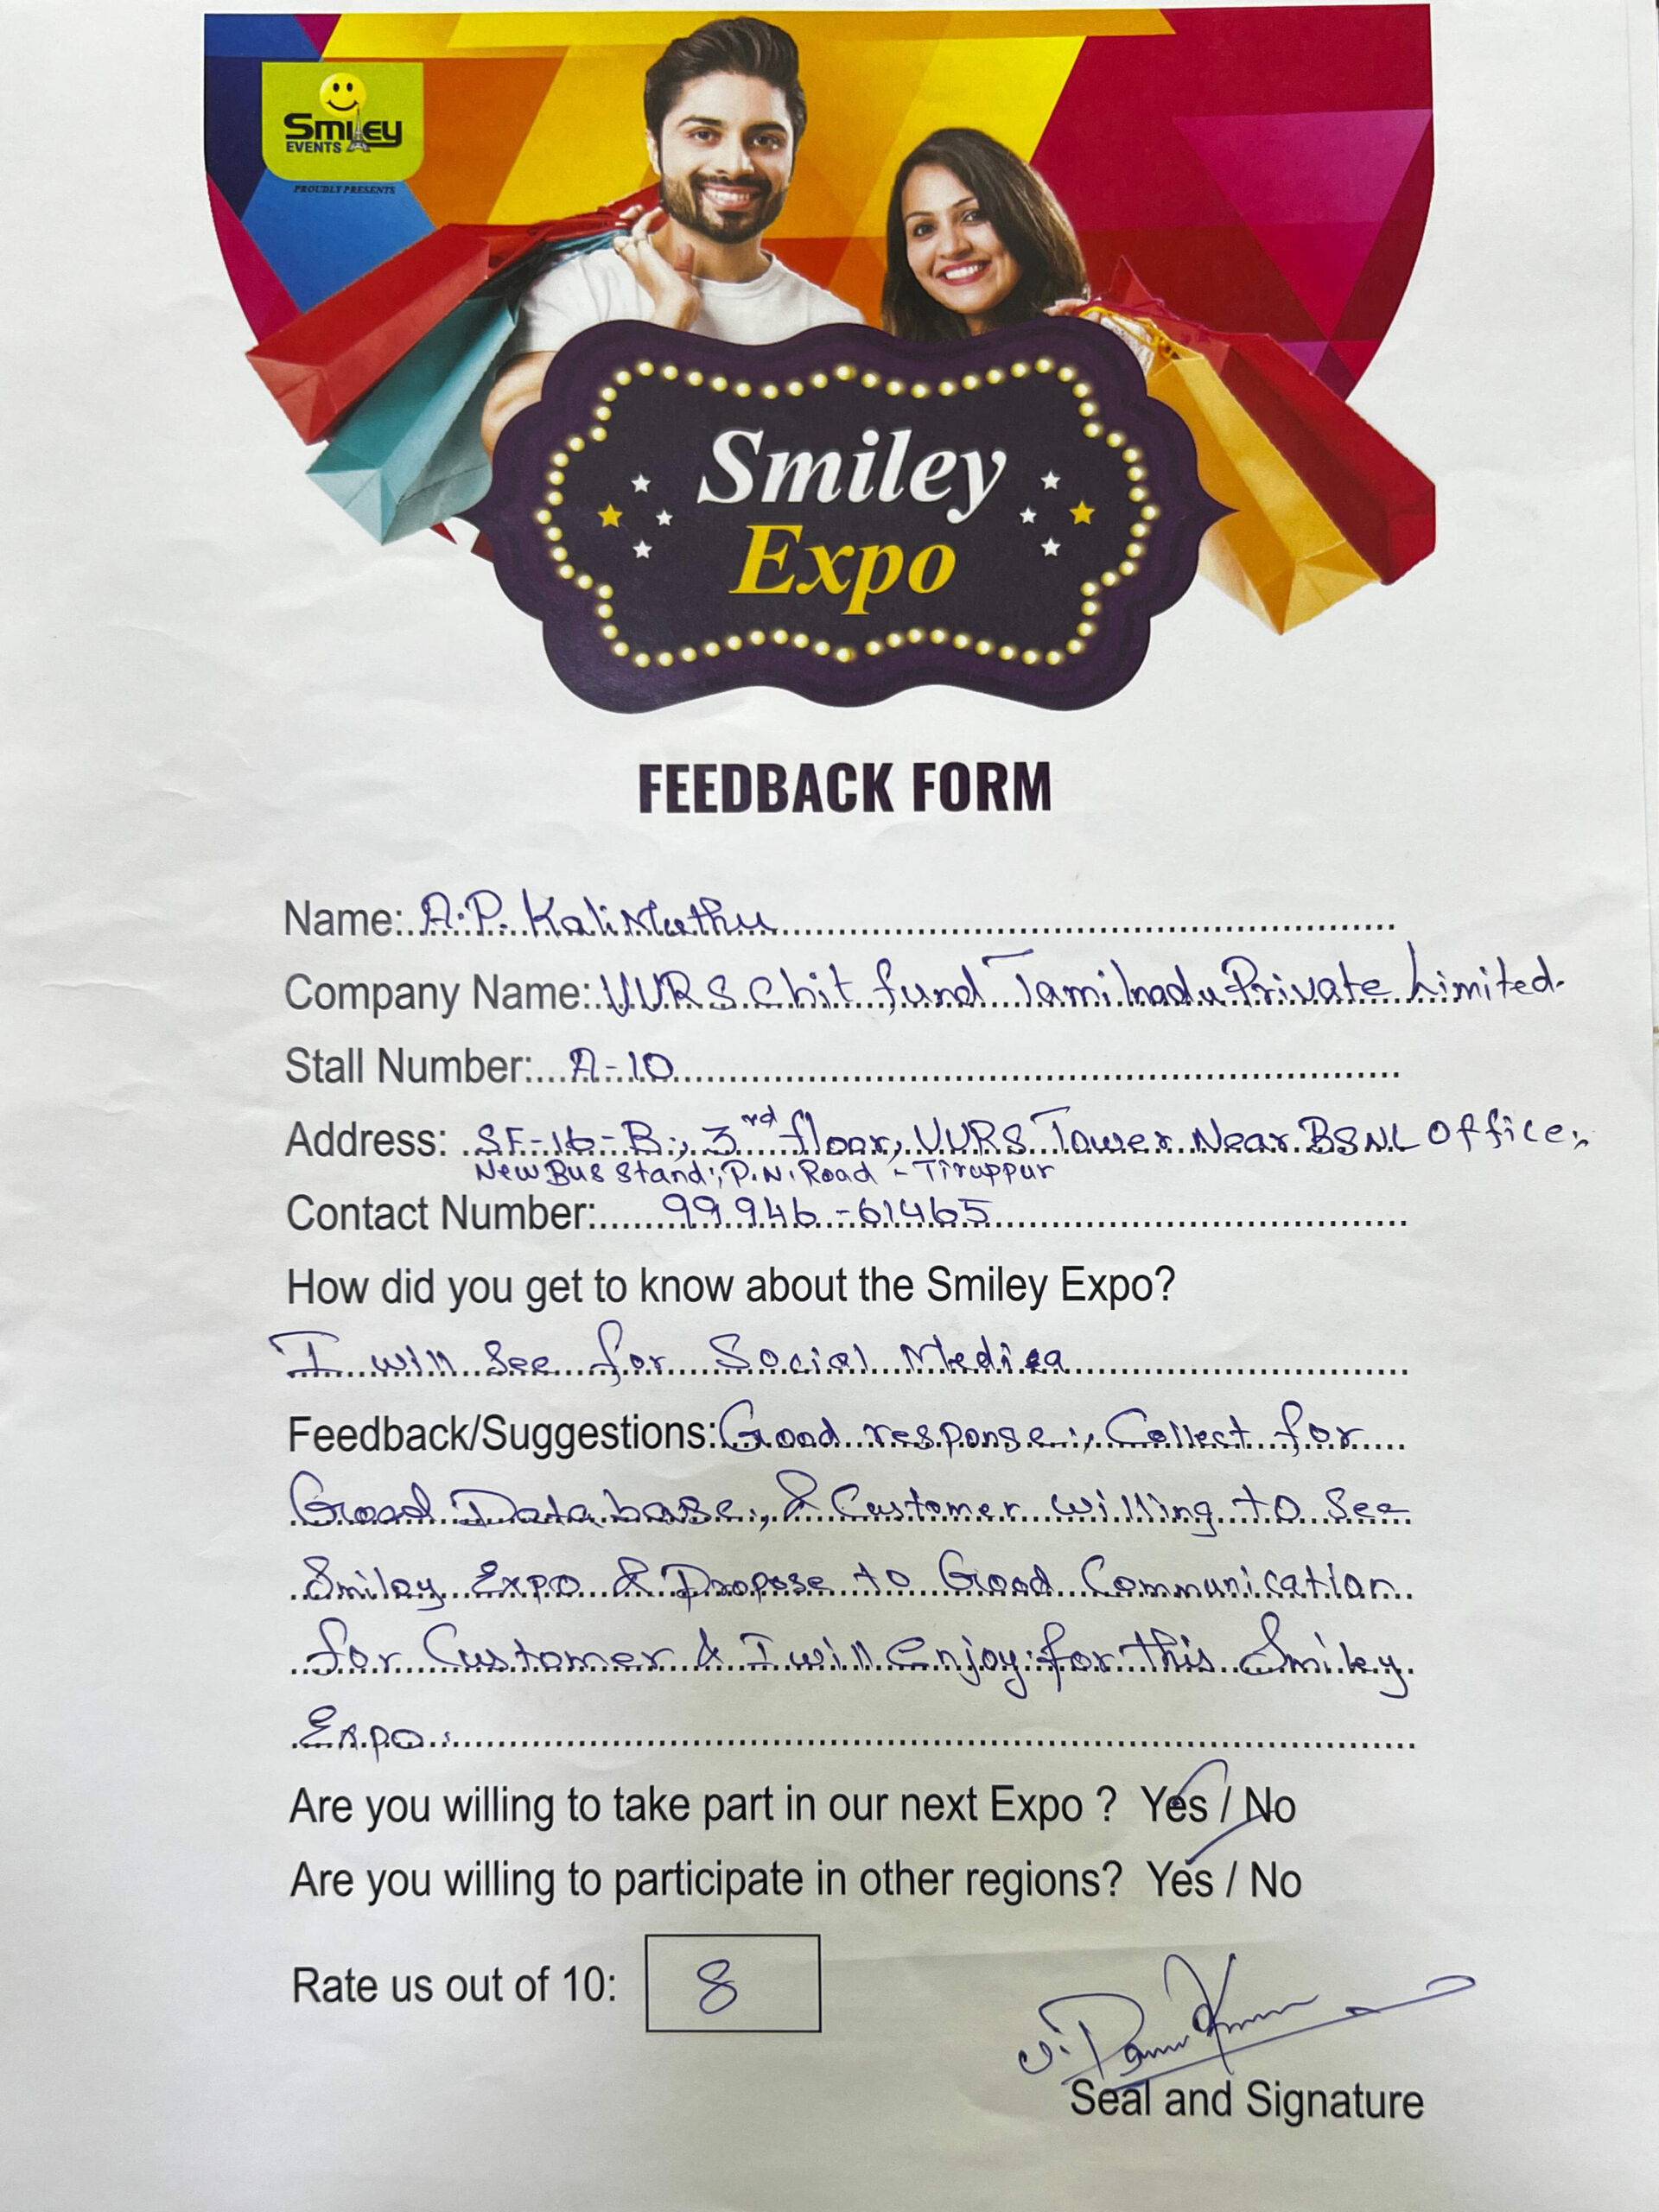 Smiley
EVENTS
PROUDLY PRESENTS
Smiley
Expo
FEEDBACK FORM
Name: A.P. KaliMuthu
Company Name: VVRS Chit fund Tamilnadu Private Limited.
Stall Number: A-10
Address: SF-16-B, 3rd floor, VVRS Tower Near BSNL Office,
New Bus Stand, P.N. Road - Tiruppur
Contact Number: 99946-61465
How did you get to know about the Smiley Expo?
I will See for Social Media
Feedback/Suggestions: Good response, Collect for
Good Database, & Customer willing to See
Smiley Expo & Propose to Good Communication
for Customer & I will Enjoy for this Smiley
Expo.
Are you willing to take part in our next Expo ? Yes / No
Are you willing to participate in other regions? Yes / No
Rate us out of 10: 8
Seal and Signature